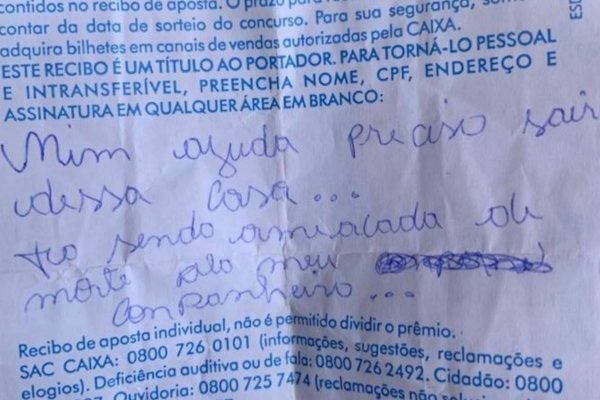 contidos no recibo de aposta. O prazo para
contar da data de sorteio do concurso. Para sua segurança, som
adquira bilhetes em canais de vendas autorizadas pela CAIXA.
ESTE RECIBO É UM TÍTULO AO PORTADOR. PARA TORNÁ-LO PESSOAL
E INTRANSFERÍVEL, PREENCHA NOME, CPF, ENDEREÇO E
ASSINATURA EM QUALQUER ÁREA EM BRANCO:
Mim ajuda preciso sair
dessa casa...
to sendo ameacada de
morte pelo meu
companheiro...
Recibo de aposta individual, não é permitido dividir o prêmio.
SAC CAIXA: 0800 726 0101 (informações, sugestões, reclamações e
elogios). Deficiência auditiva ou de fala: 0800 726 2492. Cidadão: 0800
Ouvidoria: 0800 725 7474 (reclamações não